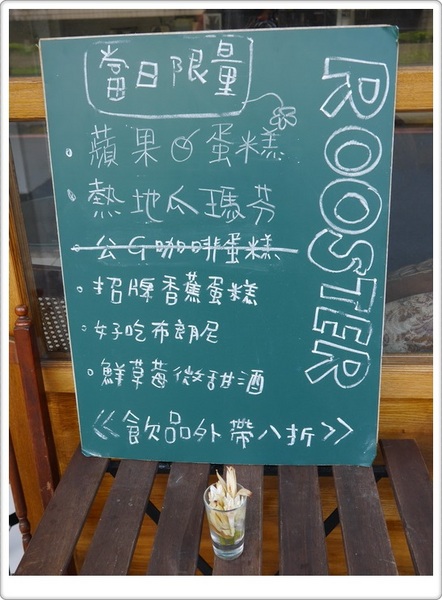 當日限量
蘋果蛋糕
熱地瓜瑪芬
公G咖啡蛋糕
招牌香蕉蛋糕
好吃布朗尼
鮮草莓微甜酒
<<飲品外帶八折>>
ROOSTER